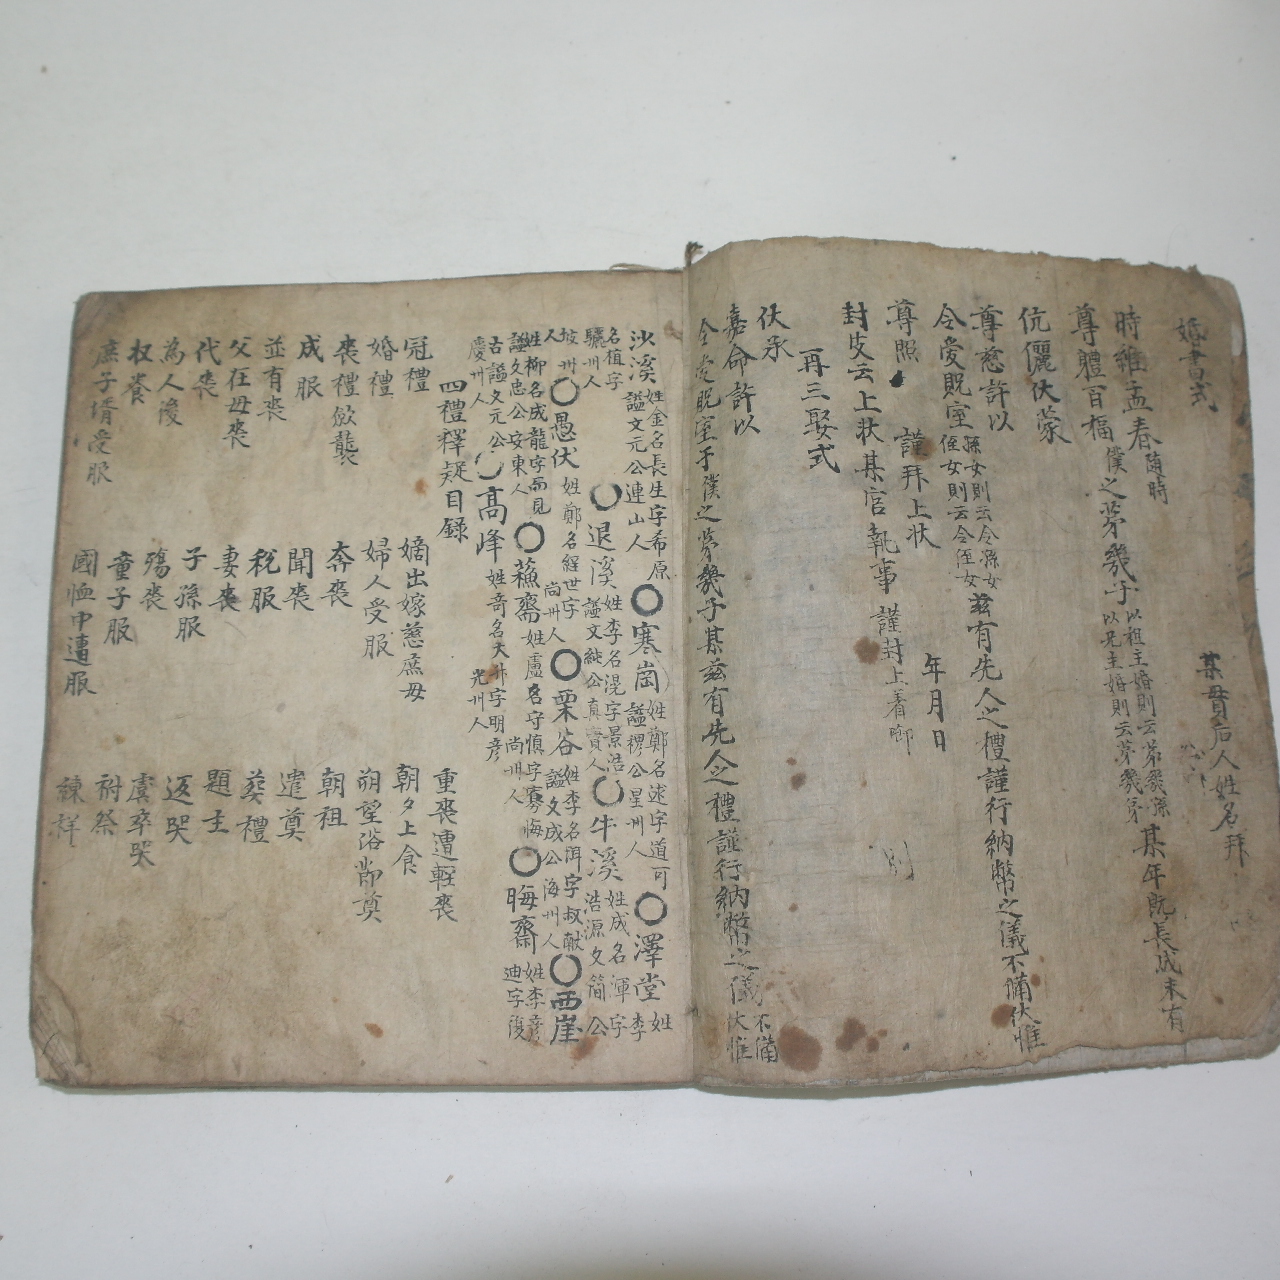 婚書式
某貫后人姓名拜
時維孟春隨時
僕之第幾子以祖主婚則云第幾孫以兄主婚則云第幾弟某年既長成未有
尊體百福
伉儷伏蒙
尊慈許以
令愛貺室孫女則云令孫女侄女則云令侄女茲有先人之禮謹行納幣之儀不備伏惟
尊照
謹拜上狀
年月日
封皮云上狀某官執事 謹封上着啣
再三娶式
伏承
嘉命許以
令愛貺室于僕之第幾子某茲有先人之禮謹行納幣之儀不備伏惟
沙溪姓金名長生字希原謚文元公連山人〇寒岡姓鄭名逑字道可謚穆公星州人〇澤堂姓李
名植字驪州人〇退溪姓李名滉字景浩謚文純公真寶人〇牛溪姓成名渾字浩源文簡公
坡州人〇愚伏姓鄭名經世字尚州人〇栗谷姓李名珥字叔献謚文成公海州人〇西崖
姓柳名成龍字而見謚文忠公安東人〇蘓齋姓盧名守慎字寡悔尚州人〇晦齋姓李彦迪字復
古謚文元公慶州人〇高峰姓奇名大升字明彦光州人
四禮釋疑目録
冠禮
嫡出嫁慈庶母
重丧遭輕丧
婚禮
婦人受服
朝夕上食
丧禮斂襲
斋丧
朔望俗節奠
成服
聞丧
朝祖
並有丧
税服
遣奠
父在母丧
妻丧
葬禮
代丧
子孫服
題主
為人後
殤丧
返哭
收養
童子服
虞卒哭
庶子壻受服
國恤中遭服
祔祭
練祥